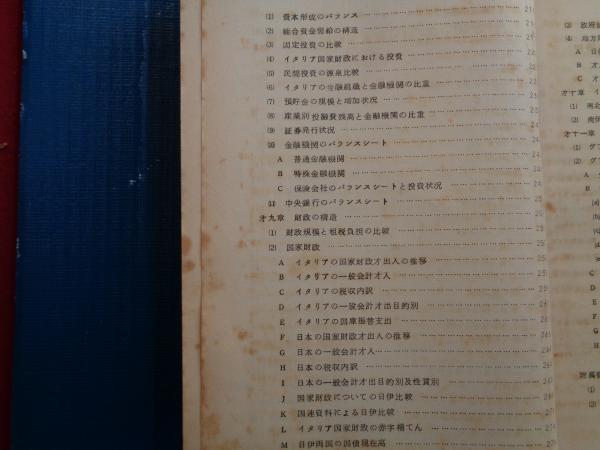 (1) 資本形成のバランス 21
(2) 総合資金需給の構造 22
(3) 固定投資の比較
(4) イタリア国家財政における投資
(5) 民間投資の源泉比較
(6) イタリアの金融組織と金融機関の比重
(7) 預貯金の規模と増加状況
(8) 産業別投融資残高と金融機関の比重
(9) 証券発行状況 24
(10) 金融機関のバランスシート 24
A 普通金融機関 24
B 特殊金融機関 24
C 保険会社のバランスシートと投資状況 24
(11) 中央銀行のバランスシート 25
才九章 財政の構造 25
(1) 財政規模と租税負担の比較 25
(2) 国家財政 25
A イタリアの国家財政才出入の推移 25
B イタリアの一般会計才入 25
C イタリアの税収内訳 25
D イタリアの一般会計才出目的別 26
E イタリアの国庫振替支出 26
F 日本の国家財政才出入の推移 26
G 日本の一般会計才入 26
H 日本の税収内訳 26
I 日本の一般会計才出目的別及性質別 26
J 国家財政についての日伊比較 27
K 国連資料による日伊比較 27
L イタリア国家財政の赤字補てん 27
M 日伊両国の国債現在高 27
(3) 政府
(4) 地方
A
B
C
才十章
(1) 南北
(2) 南伊
才十一章
(1)
(2)
A
B
(a)
C
D
E
F
G
H
附属
(1)
(2)